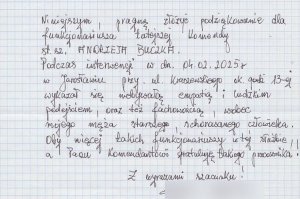 Niniejszym, pragnę złożyć podziękowanie dla
funkcjonariusza tutejszej Komendy
st. sz. ANDRZEJA BUCZKA.
Podczas interwencji w dn. 04.02.2025 r
w Jarosławiu przy ul. Kraszewskiego ok. godz. 13-ej
wykazał się niebywałą empatią, ludzkim
podejściem, oraz też fachowością, wobec
mojego męża starszego schorowanego człowieka.
Oby więcej takich funkcjonariuszy w tej służbie!,
a Panu Komendantowi gratuluję takiego pracownika!
Z wyrazami szacunku!